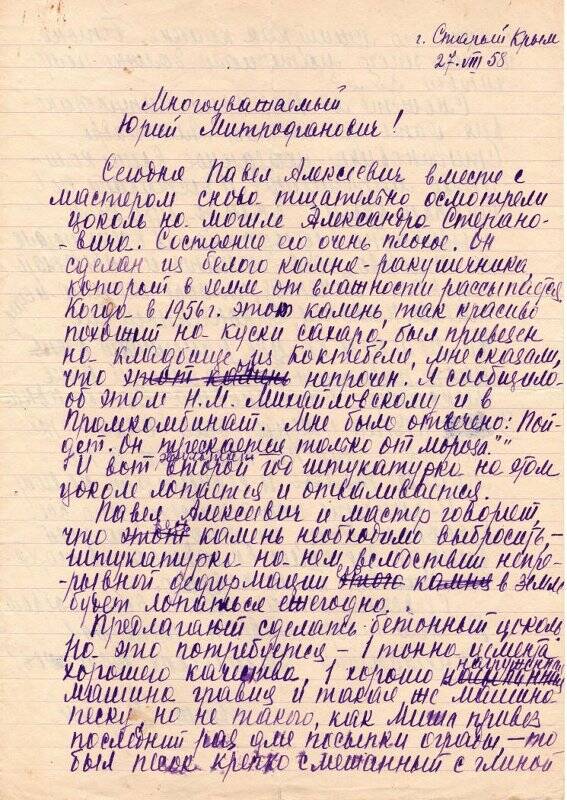 г. Старый Крым
27. VIII 58
Многоуважаемый
Юрий Митрофанович!
Сегодня Павел Алексеевич вместе с
мастером снова тщательно осмотрели
цоколь на могиле Александра Степано-
-вича. Состояние его очень плохое. Он
сделан из белого камня-ракушечника,
который в земле от влажности рассыпается
Когда в 1956 г. этот камень, так красиво
похожий на куски сахара, был привезен
на кладбище из Коктебеля, мне сказали,
что он этот камень непрочен. Я сообщила
об этом Н.М. Михайловскому и в
Промкомбинат. Мне было отвечено: "Пой-
дет. Он трескается только от мороза.""
И вот второй год штукатурка на этом
цоколе лопается и откалывается.
Павел Алексеевич и мастер говорят,
что этот весь камень необходимо выбросить —
штукатурка на нем вследствии непре-
-рывной деформации его этого камня в земле
будет лопаться ежегодно.
Предлагают сделать бетонный цоколь.
На это потребуется — 1 тонна цемента
хорошего качества, 1 хорошо нагруженная
машина гравия и такая же машина
песку, но не такого, как Миша привез
последний раз для посыпки ограды, — то
был песок крепко смешанный с глиной